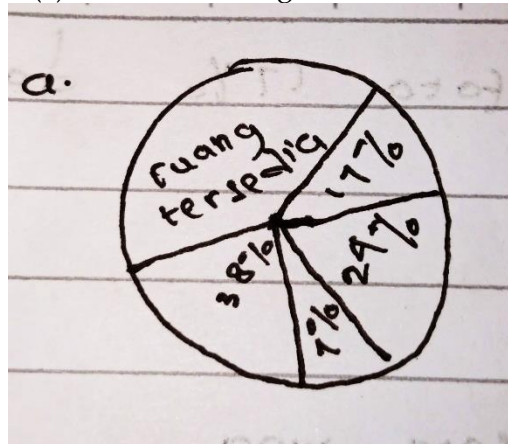 a.
ruang
tersedia
17%
29%
38%
7%